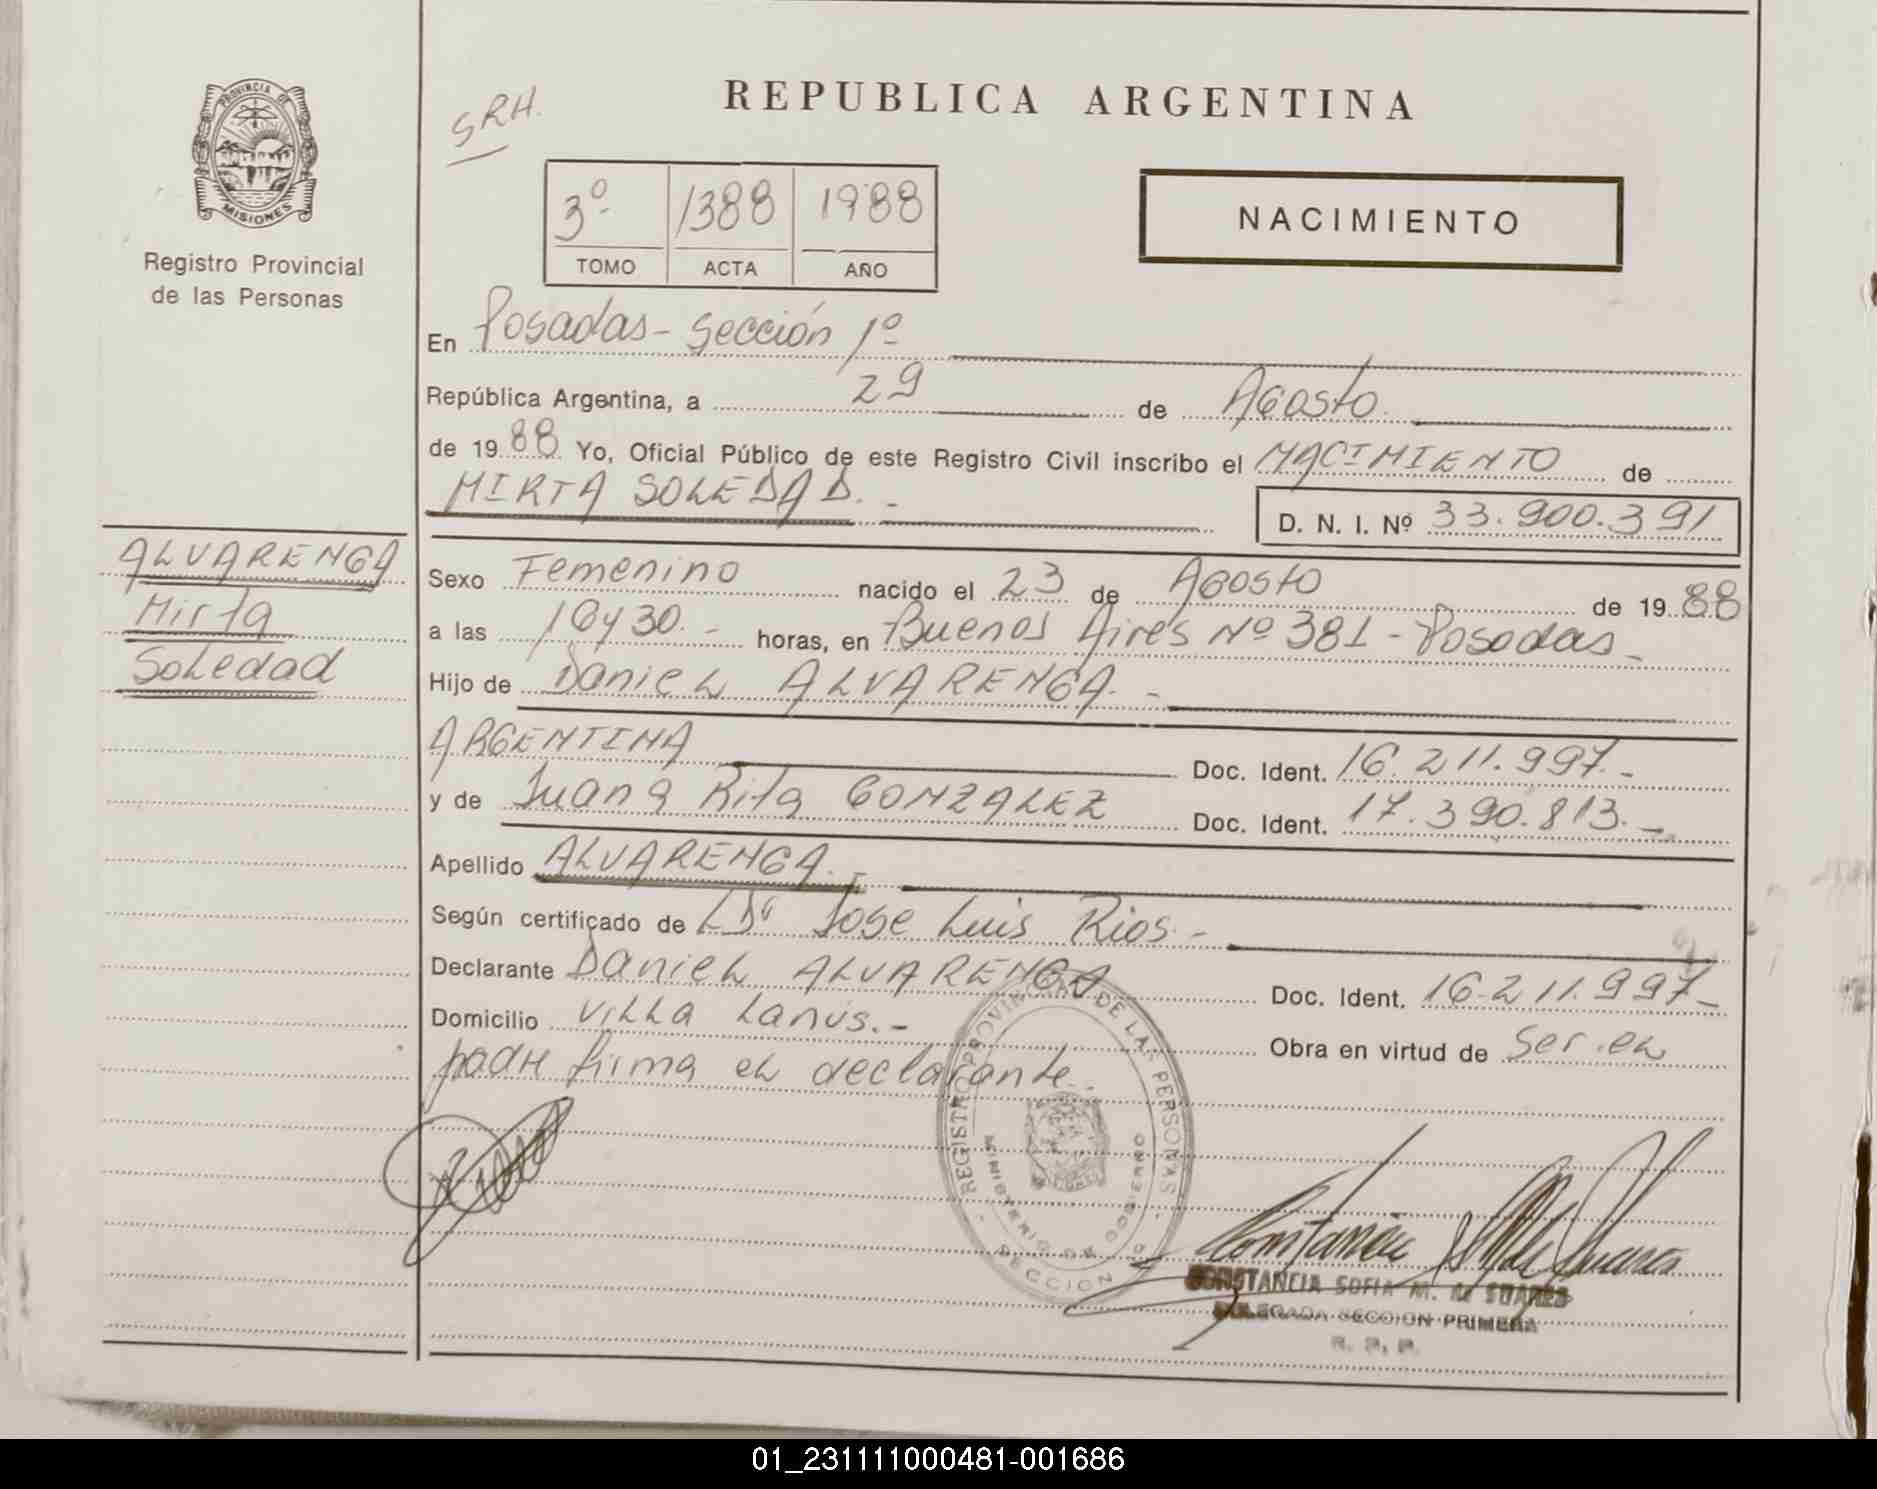 PROVINCIA DE
MISIONES
Registro Provincial
de las Personas
SRH.
REPUBLICA ARGENTINA
3º 1388 1988
TOMO ACTA AÑO
NACIMIENTO
En Posadas - Sección 1º
República Argentina, a 29 de Agosto
de 1988 Yo, Oficial Público de este Registro Civil inscribo el NACIMIENTO de
MIRTA SOLEDAD. -
D. N. I. Nº 33.900.391
ALVARENGA
Mirta
Soledad
Sexo Femenino nacido el 23 de Agosto de 1988
a las 16y30. - horas, en Buenos Aires Nº 381 - Posadas -
Hijo de Daniel ALVARENGA. -
ARGENTINA Doc. Ident. 16.211.997. -
y de Juana Rita GONZALEZ Doc. Ident. 17.390.813. -
Apellido ALVARENGA. -
Según certificado de Dr Jose Luis Rios. -
Declarante Daniel ALVARENGA Doc. Ident. 16.211.997 -
Domicilio Villa Lanús. - Obra en virtud de ser el
padre firma el declarante.
REGISTRO PROVINCIAL DE LAS PERSONAS
MINISTERIO DE GOBIERNO
SECCION
CONSTANCIA SOFIA M. de SUARES
DELEGADA SECCION PRIMERA
R. P. P.
01_231111000481-001686